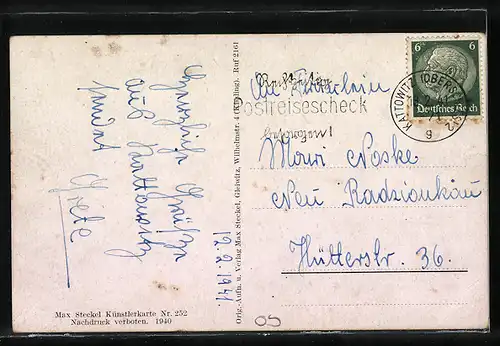 Herzliche Grüße
aus Kattowitz
sendet
Grete
12.2.1941.
Max Steckel Künstlerkarte Nr. 252
Nachdruck verboten, 1940
Orig.-Aufn. u. Verlag Max Steckel, Gleiwitz, Wilhelmstr. 4 (Kipling), Ruf 2161
Postreisescheck
KATTOWITZ (OBERSCHLES)
g
6 6
Deutsches Reich
An Fräulein
Noske
Neu Radzionkau
Hütterstr. 36.
05